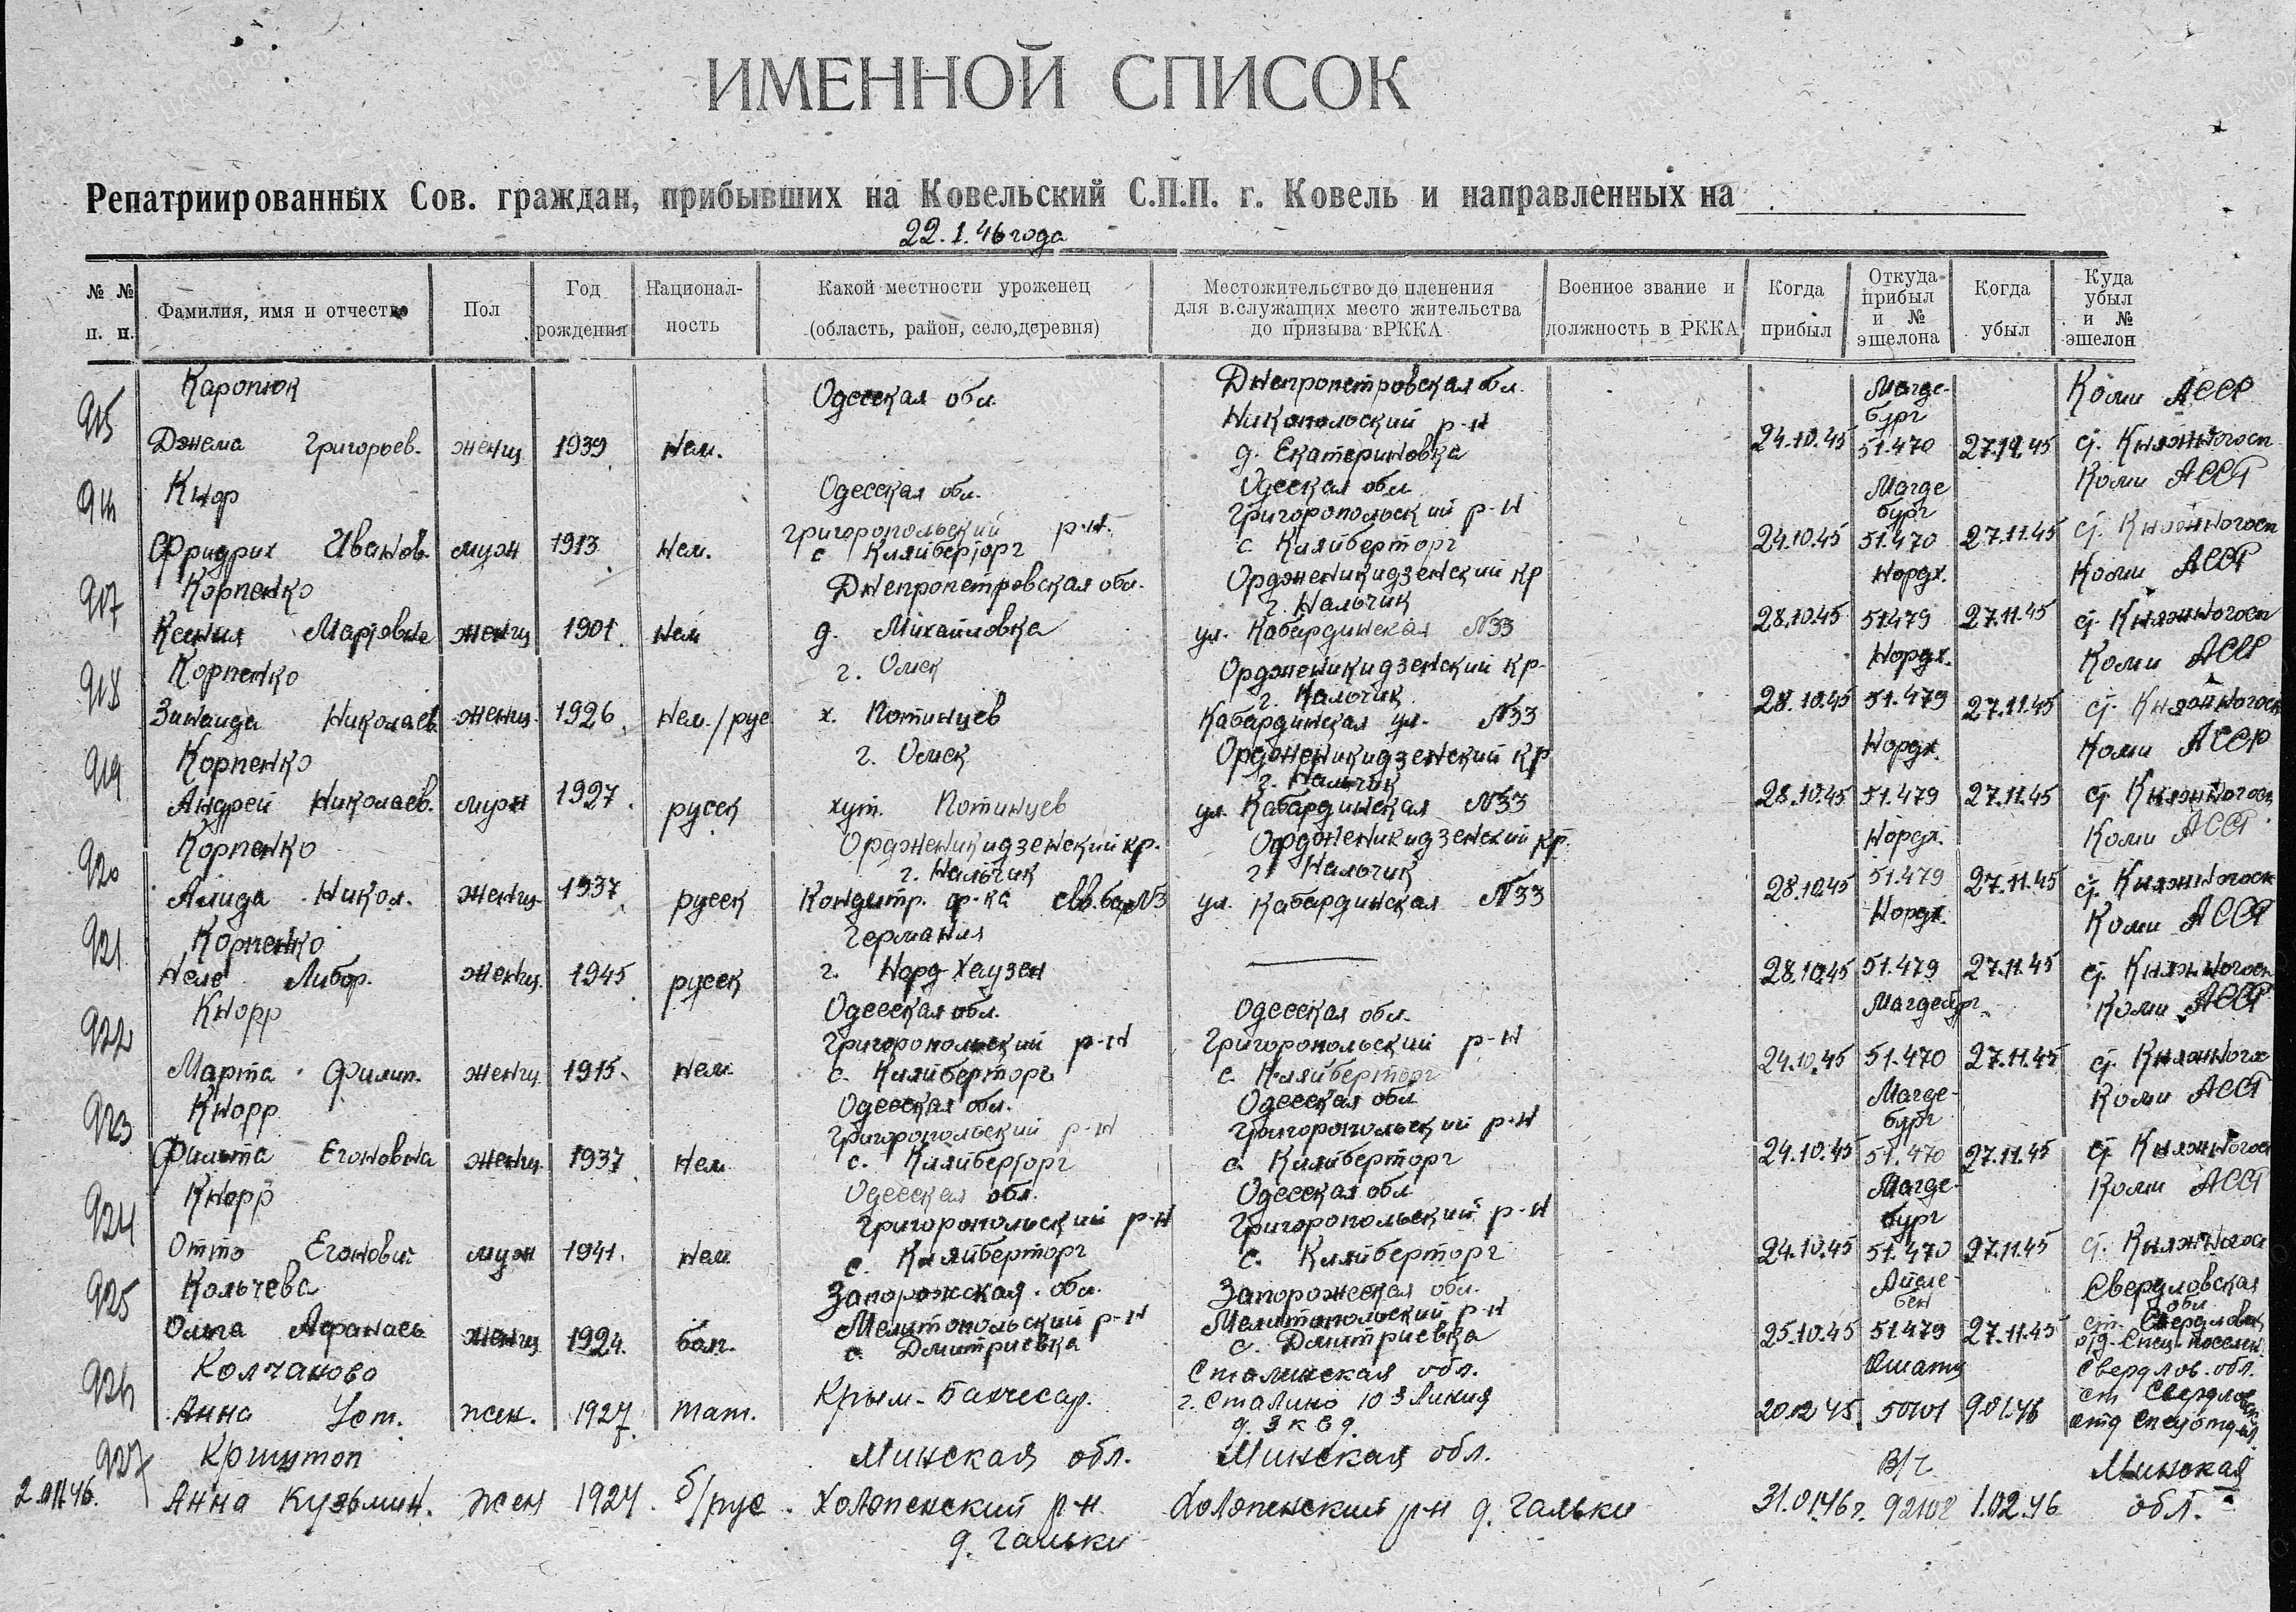 ИМЕННОЙ СПИСОК
Репатриированных Сов. граждан, прибывших на Ковельский С.П.П. г. Ковель и направленных на
22.1.46 года
№ № п. п. Фамилия, имя и отчество Пол Год рождения Национальность Какой местности уроженец (область, район, село, деревня) Местожительство до пленения для в.служащих место жительства до призыва в РККА Военное звание и должность в РККА Когда прибыл Откуда прибыл и № эшелона Когда убыл Куда убыл и № эшелон
915 Каропюк Одесская обл. Днепропетровская обл. Магде- Коми АССР
Никопольский р-н бург
Джема Григорьев. женщ 1939 Нем. д. Екатериновка 24.10.45 51.470 27.11.45 ст. Княжпогост
916 Кнор Одесская обл. Одесская обл Магде Коми АССР
Григоропольский р-н. Григоропольский р-н бург
Фридрих Иванов. муж 1913 Нем. с Кляйберторг с. Кляйберторг 24.10.45 51.470 27.11.45 ст. Княжпогост
917 Корпенко Днепропетровская обл. Орджоникидзенский кр Нордх. Коми АССР
г. Нальчик
Ксения Марковна женщ 1901 Нем д. Михайловка ул. Кабардинская №33 28.10.45 51479 27.11.45 ст. Княжпогост
918 Корпенко г. Омск Орджоникидзенский кр- Нордх. Коми АССР
г. Нальчик
Зинаида Николаев. женщ. 1926 Нем./рус х. Потинцев Кабардинская ул. №33 28.10.45 51.479 27.11.45 ст. Княжпогост
919 Корпенко г. Омск Орджоникидзенский кр Нордх. Коми АССР
г. Нальчик
Андрей Николаев. муж 1927. русск хут. Потинцев ул. Кабардинская №33 28.10.45 51.479 27.11.45 ст Княжпогост
920 Корпенко Орджоникидзенский кр. Орджоникидзенский кр. Нордх. Коми АССР
г. Нальчик г. Нальчик
Алида Никол. женщ. 1937 русск Кондитр. ф-ка ул. Кабардинская №33 28.10.45 51.479 27.11.45 ст Княжпогост
921 Корпенко Германия Нордх. Коми АССР
Неле Либор. женщ. 1945 русск г. Норд-Хаузен 28.10.45 51.479 27.11.45 ст Княжпогост
922 Кнорр Одесская обл. Одесская обл. Магдебург Коми АССР
Григоропольский р-н Григоропольский р-н
Марта Филип. женщ 1915. Нем. с. Кляйберторг с. Кляйберторг 24.10.45 51.470 27.11.45 ст Княжпогост
923 Кнорр Одесская обл. Одесская обл Магде- Коми АССР
Григоропольский р-н Григоропольский р-н бург
Фильта Егоновна женщ 1937 Нем с. Кляйберторг с. Кляйберторг 24.10.45 51.470 27.11.45 ст Княжпогост
924 Кнорр Одесская обл. Одесская обл Магде- Коми АССР
Григоропольский р-н Григоропольский р-н бург
Отто Егонович муж 1941. Нем с. Кляйберторг с. Кляйберторг 24.10.45 51.470 27.11.45 ст. Княжпогост
925 Кольчева Запорожская обл. Запорожская обл. Айсле- Свердловская
Мелитопольский р-н Мелитопольский р-н бен обл
ст. Свердловск
Ольга Афанась женщ 1924. бол. с. Дмитриевка с. Дмитриевка 25.10.45 51479 27.11.45 отд. Спец. Поселен.
926 Колчаново Крым-Бахчесар. Сталинская обл. Свердлов. обл.
г. Сталино 10 3 Линия ст Свердловск
Анна Уст. жен. 1927 тат. д. 3 кв 9. 20.12 45 50701 9.01.46 отд спецотдел
927 Криштоп Минская обл. Минская обл. В/ч Минская
2.02.46. Анна Кузьмин. жен 1924. б/рус. Холопенский р-н Холопенский р-н д. Гальки 31.01.46 г. 92102 1.02.46 обл.
д. Гальки